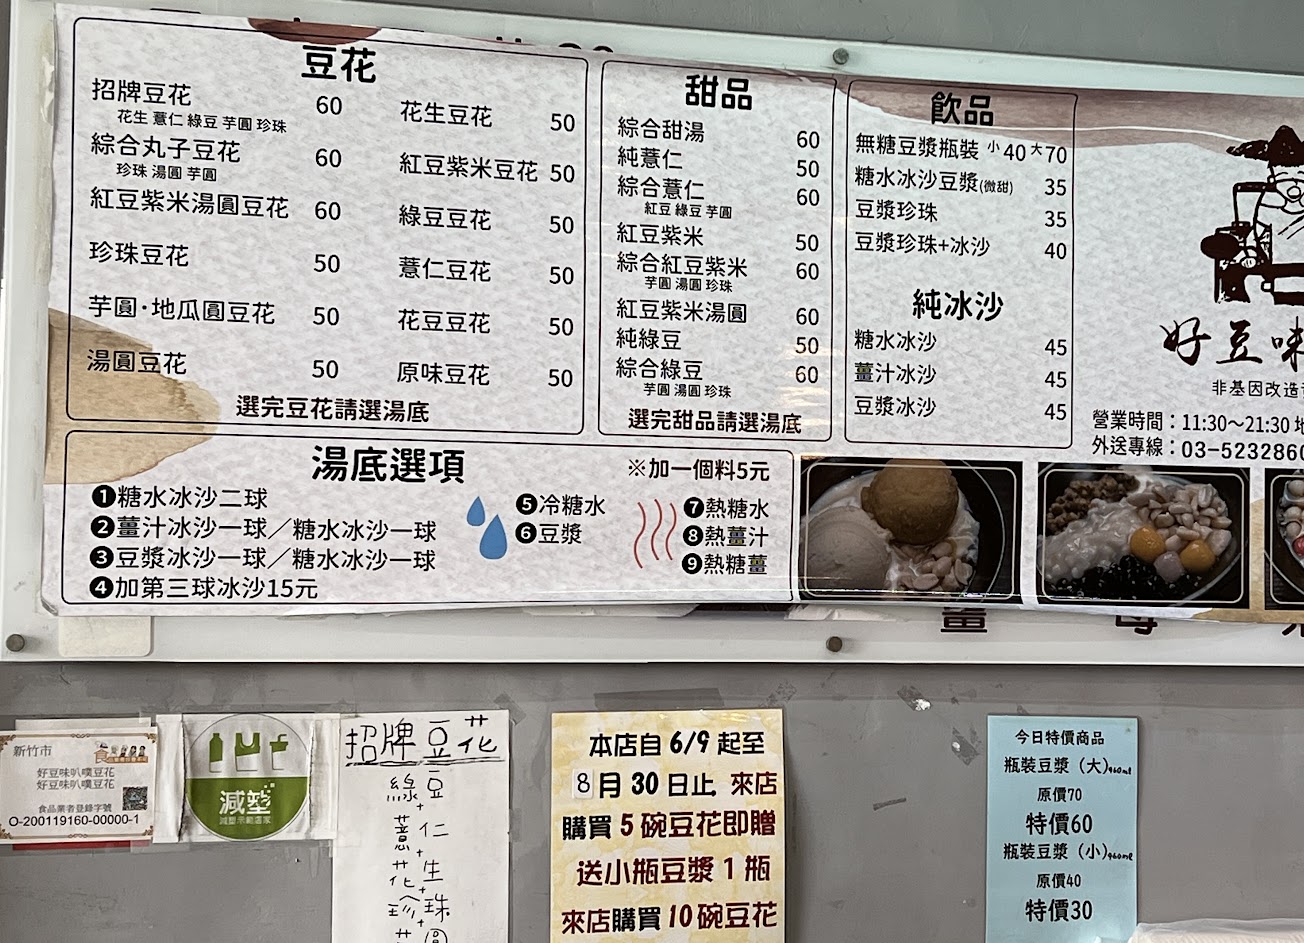 豆花
招牌豆花 60
花生 薏仁 綠豆 芋圓 珍珠
綜合丸子豆花 60
珍珠 湯圓 芋圓
紅豆紫米湯圓豆花 60
珍珠豆花 50
芋圓·地瓜圓豆花 50
湯圓豆花 50
花生豆花 50
紅豆紫米豆花 50
綠豆豆花 50
薏仁豆花 50
花豆豆花 50
原味豆花 50
選完豆花請選湯底
甜品
綜合甜湯 60
純薏仁 50
綜合薏仁 60
紅豆 綠豆 芋圓
紅豆紫米 50
綜合紅豆紫米 60
芋圓 湯圓 珍珠
紅豆紫米湯圓 60
純綠豆 50
綜合綠豆 60
芋圓 湯圓 珍珠
選完甜品請選湯底
飲品
無糖豆漿瓶裝 小40大70
糖水冰沙豆漿(微甜) 35
豆漿珍珠 35
豆漿珍珠+冰沙 40
純冰沙
糖水冰沙 45
薑汁冰沙 45
豆漿冰沙 45
好豆味
非基因改造
營業時間：11:30～21:30
外送專線：03-5232860
湯底選項
※加一個料5元
❶糖水冰沙二球
❷薑汁冰沙一球／糖水冰沙一球
❸豆漿冰沙一球／糖水冰沙一球
❹加第三球冰沙15元
❺冷糖水
❻豆漿
❼熱糖水
❽熱薑汁
❾熱糖薑
新竹市
好豆味叭噗豆花
好豆味叭噗豆花
食品業者登錄字號
O-200119160-00000-1
減塑
減塑示範店家
招牌豆花
綠豆
+
薏仁
+
花生
+
珍珠
+
本店自 6/9 起至
8月 30 日止 來店
購買 5 碗豆花即贈
送小瓶豆漿 1 瓶
來店購買 10 碗豆花
今日特價商品
瓶裝豆漿（大）960ml
原價70
特價60
瓶裝豆漿（小）
原價40
特價30